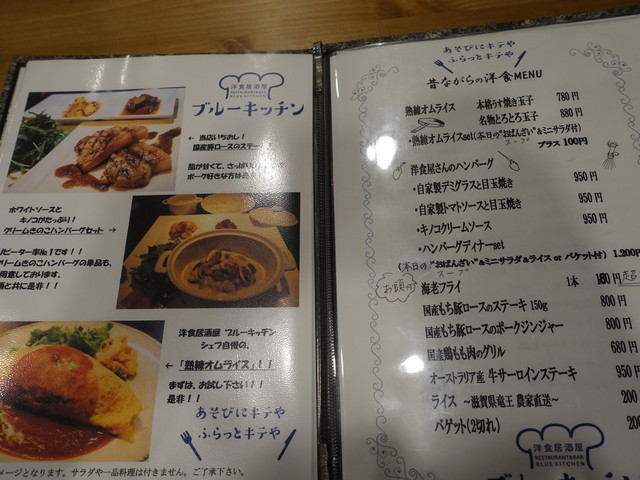 洋食居酒屋
RESTAURANT&BAR
BLUE KITCHEN
ブルーキッチン
← 当店いちおし!
国産豚ロースのステー
脂が甘くて、さっぱり
ポーク好きな方は
ホワイトソースと
キノコがたっぷり!
クリームきのこハンバーグセット →
リピーター率No.1です!!
クリームきのこハンバーグの単品も、
用意しております。
と共に是非!!
洋食居酒屋 ブルーキッチン
シェフ自慢の、
← 「熟練オムライス」!!
まずは、お試し下さい!!
是非!!
あそびにキテや
ふらっとキテや
メージとなります。サラダや一品料理は付きません。ご了承下さい。
あそびにキテや
ふらっとキテや
昔ながらの洋食MENU
熟練オムライス 本格うす焼き玉子 780円
名物とろとろ玉子 880円
・熟練オムライスset(本日の"おばんざい"&ミニサラダ付)
スープ プラス 100円
洋食屋さんのハンバーグ
・自家製デミグラスと目玉焼き 950円
・自家製トマトソースと目玉焼き 950円
・キノコクリームソース 950円
・ハンバーグディナーset
(本日の"おばんざい"&ミニサラダ&ライス or バゲット付) 1.200円
スープ
お頭付 海老フライ 1本
国産もち豚ロースのステーキ 150g 800円
国産もち豚ロースのポークジンジャー 800円
国産鶏もも肉のグリル 680円
オーストラリア産 牛サーロインステーキ 950円
ライス ~滋賀県竜王 農家直送~ 200
バゲット(2切れ) 200
洋食居酒屋
RESTAURANT&BAR
BLUE KITCHEN